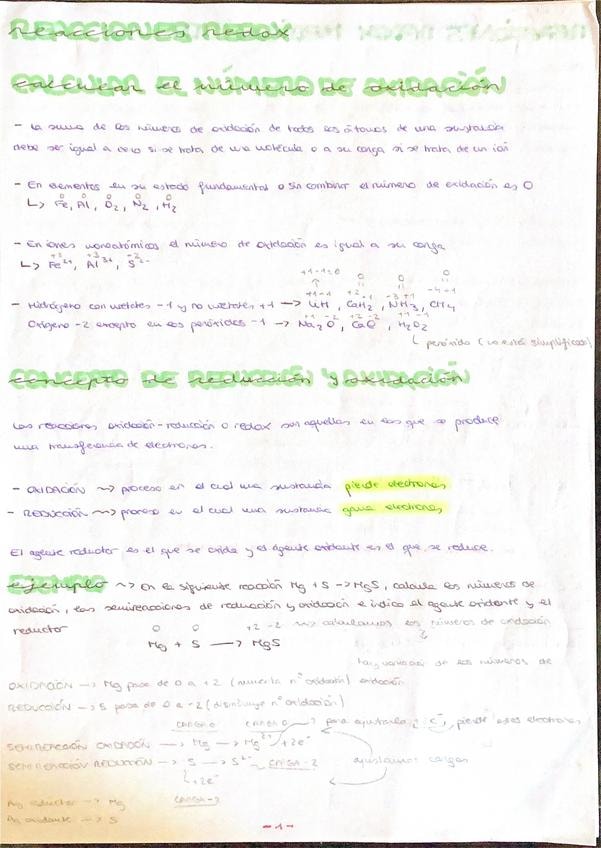 Reacciones Redox
Calcular el número de oxidación
- La suma de los números de oxidación de todos los átomos de una sustancia
debe ser igual a cero si se trata de una molécula o a su carga si se trata de un ion
- En elementos en su estado fundamental o sin combinar el número de oxidación es 0
0 0 0 0 0
↳ Fe, Al, O2, N2, H2
- En iones monoatómicos el número de oxidación es igual a su carga
+2 +3 -2
↳ Fe2+, Al3+, S2-
+1-1=0 0 0 0
+1-1 +2-1 -3+1 -4-1
- Hidrógeno con metales -1 y no metales +1 → LiH, CaH2, NH3, CH4
+1 -2 +2 -2 +1 -1
Oxígeno -2 excepto en los peróxidos -1 → Na2O, CaO, H2O2
↳ peróxido (no están simplificados)
Concepto de reducción y oxidación
Las reacciones oxidación-reducción o redox son aquellas en las que se produce
una transferencia de electrones.
- OXIDACIÓN ~> proceso en el cual una sustancia pierde electrones
- REDUCCIÓN ~> proceso en el cual una sustancia gana electrones
El agente reductor es el que se oxida y el agente oxidante es el que se reduce.
ejemplo ~> En la siguiente reacción Mg + S → MgS, calcula los números de
oxidación, las semireacciones de reducción y oxidación e indica el agente oxidante y el
reductor
0 0 +2 -2 ~> calculamos los números de oxidación
Mg + S → MgS
hay variación de los números de
oxidación
OXIDACIÓN → Mg pasa de 0 a +2 (aumenta nº oxidación)
REDUCCIÓN → S pasa de 0 a -2 (disminuye nº oxidación)
CARGA 0 CARGA 0 → para ajustarla, 2 e-, pierde esos electrones
SEMIREACCIÓN OXIDACIÓN → Mg → Mg2+ + 2e-
SEMIREACCIÓN REDUCCIÓN → S → S2- CARGA -2 ajustamos cargas
↳ +2e-
CARGA -2
Ag reductor → Mg
Ag oxidante → S
-1-